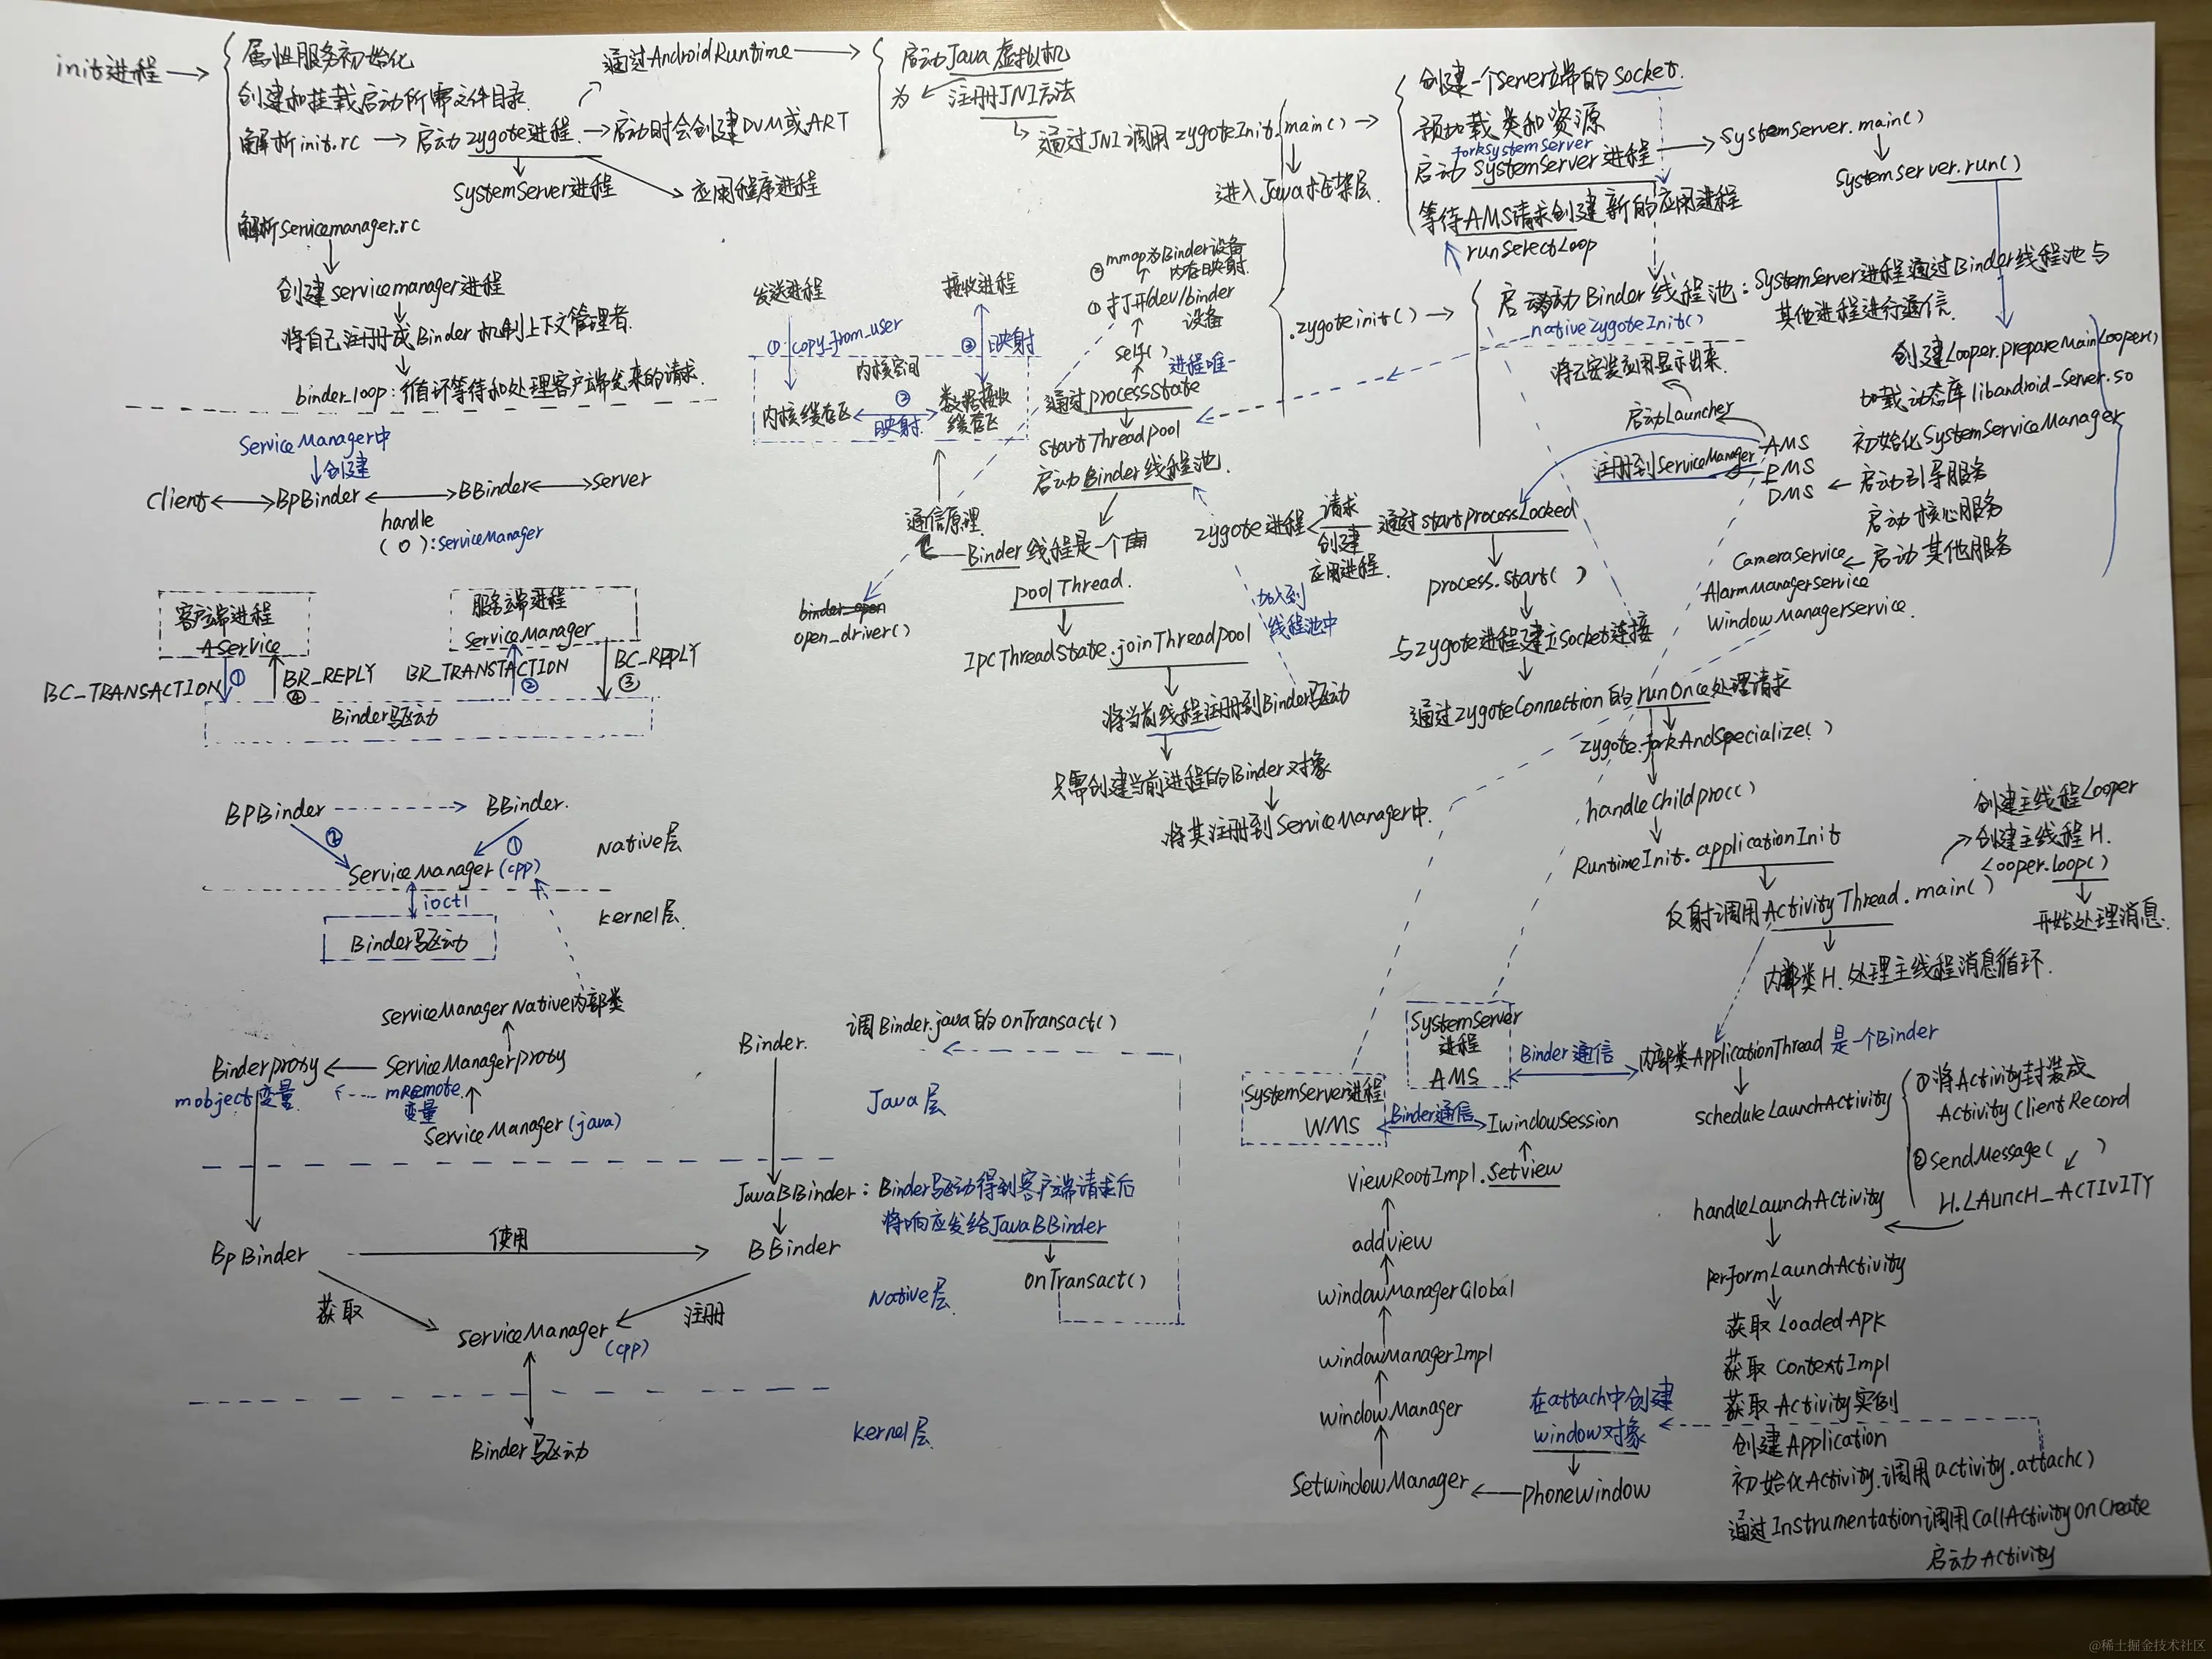 init进程
属性服务初始化
创建和挂载启动所需文件目录
解析init.rc → 启动zygote进程 → 启动时会创建DVM或ART
SystemServer进程
应用程序进程
解析servicemanager.rc
创建servicemanager进程
将自己注册成Binder机制上下文管理者
binder_loop：循环等待和处理客户端发来的请求
通过AndroidRuntime
启动Java虚拟机
为 注册JNI方法
通过JNI调用zygoteInit.main()
进入Java框架层
创建一个Server端的Socket
预加载类和资源
forkSystemServer
启动SystemServer进程
等待AMS请求创建新的应用进程
runSelectLoop
SystemServer.main()
SystemServer.run()
.zygoteinit()
Binder线程池：SystemServer进程通过Binder线程池与
其他进程进行通信
nativeZygoteInit()
创建Looper.prepareMainLooper()
加载动态库libandroid_server.so
初始化SystemServiceManager
启动引导服务
启动核心服务
启动其他服务
AMS
PMS
DMS
CameraService
AlarmManagerService
WindowManagerService
将已安装应用显示出来
启动Launcher
注册到ServiceManager
发送进程
接收进程
① copy_from_user
③ 映射
内核空间
内核缓存区
② 映射
数据接收
缓存区
通信原理
② mmap为Binder设备
内存映射
① 打开dev/binder
设备
self()
进程唯一
通过processState
startThreadPool
启动Binder线程池
Binder线程是一个
poolThread.
open_driver()
IPCThreadState.joinThreadpool
将当前线程注册到Binder驱动
只需创建当前进程的Binder对象
将其注册到ServiceManager中
加入到
线程池中
zygote进程
请求
创建
应用进程
通过startprocessLocked
process.start( )
与zygote进程建立Socket连接
通过zygoteConnection的runOnce处理请求
zygote.forkAndSpecialize( )
handleChildproc()
RuntimeInit.applicationInit
反射调用ActivityThread.main()
内部类H.处理主线程消息循环.
创建主线程Looper
创建主线程H.
Looper.loop()
开始处理消息.
ServiceManager中
创建
Client
BpBinder
BBinder
Server
handle
(0):ServiceManager
客户端进程
AService
服务端进程
ServiceManager
BC_TRANSACTION ①
BR_REPLY ④
BR_TRANSTACTION ②
BC_REPLY ③
Binder驱动
BPBinder
BBinder.
②
①
ServiceManager(cpp)
Native层
ioctl
kernel层
Binder驱动
ServiceManagerNative内部类
Binderproxy
ServiceManagerproxy
mobject变量
mRemote
变量
ServiceManager(java)
Binder.
调Binder.java的onTransact()
Java层
JavaBBinder：Binder驱动得到客户端请求后
将响应发给JavaBBinder
BpBinder
使用
BBinder
onTransact()
Native层
获取
注册
ServiceManager
(cpp)
Binder驱动
kernel层
SystemServer
进程
AMS
Binder通信
内部类ApplicationThread是一个Binder
SystemServer进程
WMS
Binder通信
IwindowSession
viewRootImpl.setview
addview
windowManagerGlobal
windowManagerImpl
windowManager
SetwindowManager
phonewindow
在attach中创建
window对象
scheduleLaunchActivity
①将Activity封装成
ActivityClientRecord
②sendMessage( )
H.LAUNCH_ACTIVITY
handleLaunchActivity
performLaunchActivity
获取LoadedApk
获取ContextImpl
获取Activity实例
创建Application
初始化Activity.调用activity.attach()
通过Instrumentation调用callActivityOnCreate
启动Activity
@稀土掘金技术社区